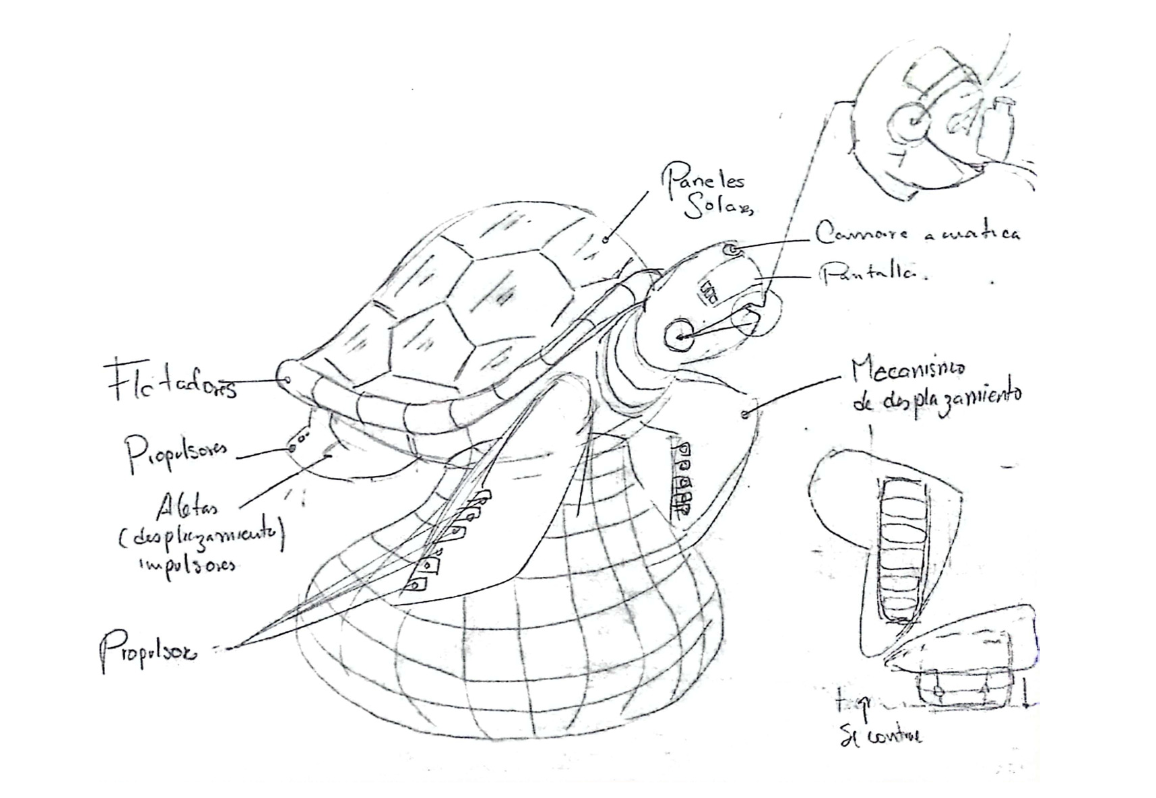 Paneles
Solares
Camara acuatica
Pantalla.
Flotadores
Mecanismo
de desplazamiento
Propulsores
Aletas
(desplazamiento)
impulsores
Propulsor
Se contrae